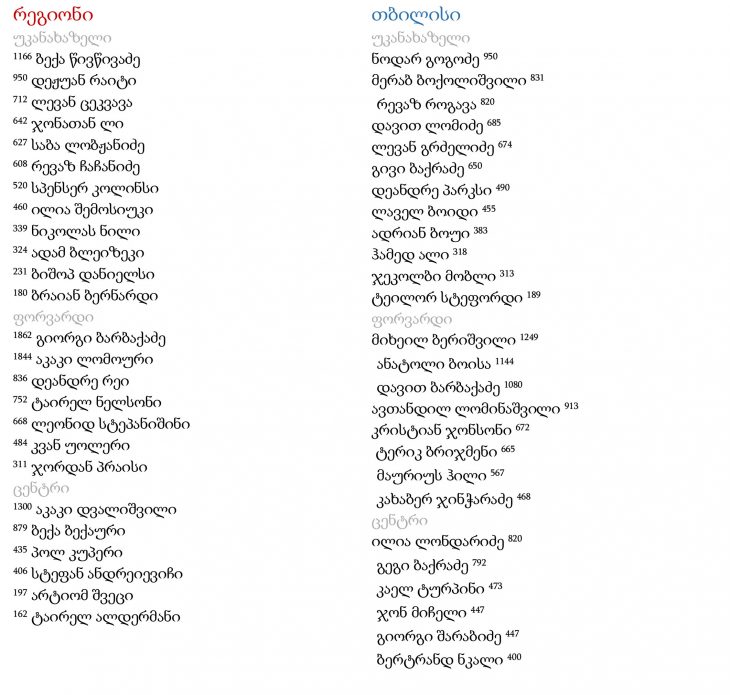 რეგიონი
უკანახაზელი
1166 ბექა წივწივაძე
950 დეჟუან რაიტი
712 ლევან ცეკვავა
642 ჯონათან ლი
627 საბა ლობჟანიძე
608 რევაზ ჩაჩანიძე
520 სპენსერ კოლინსი
460 ილია შემოსიუკი
339 ნიკოლას ნილი
324 ადამ ბლეიზეკი
231 ბიშოპ დანიელსი
180 ბრაიან ბერნარდი
ფორვარდი
1862 გიორგი ბარბაქაძე
1844 აკაკი ლომოური
836 დეანდრე რეი
752 ტაირელ ნელსონი
668 ლეონიდ სტეპანიშინი
484 კვან უოლერი
311 ჯორდან პრაისი
ცენტრი
1300 აკაკი დვალიშვილი
879 ბექა ბექაური
435 პოლ კუპერი
406 სტეფან ანდრეიევიჩი
197 არტიომ შვეცი
162 ტაირელ ალდერმანი
თბილისი
უკანახაზელი
ნოდარ გოგოძე 950
მერაბ ბოქოლიშვილი 831
რევაზ როგავა 820
დავით ლომიძე 685
ლევან გრძელიძე 674
გივი ბაქრაძე 650
დეანდრე პარკსი 490
ლაველ ბოიდი 455
ადრიან ბოუი 383
ჰამედ ალი 318
ჯეკოლბი მობლი 313
ტეილორ სტეფორდი 189
ფორვარდი
მიხეილ ბერიშვილი 1249
ანატოლი ბოისა 1144
დავით ბარბაქაძე 1080
ავთანდილ ლომინაშვილი 913
კრისტიან ჯონსონი 672
ტერიკ ბრიჯმენი 665
მაურიუს ჰილი 567
კახაბერ ჯინჭარაძე 468
ცენტრი
ილია ლონდარიძე 820
გეგი ბაქრაძე 792
კაელ ტურპინი 473
ჯონ მიჩელი 447
გიორგი შარაბიძე 447
ბერტრანდ ნკალი 400